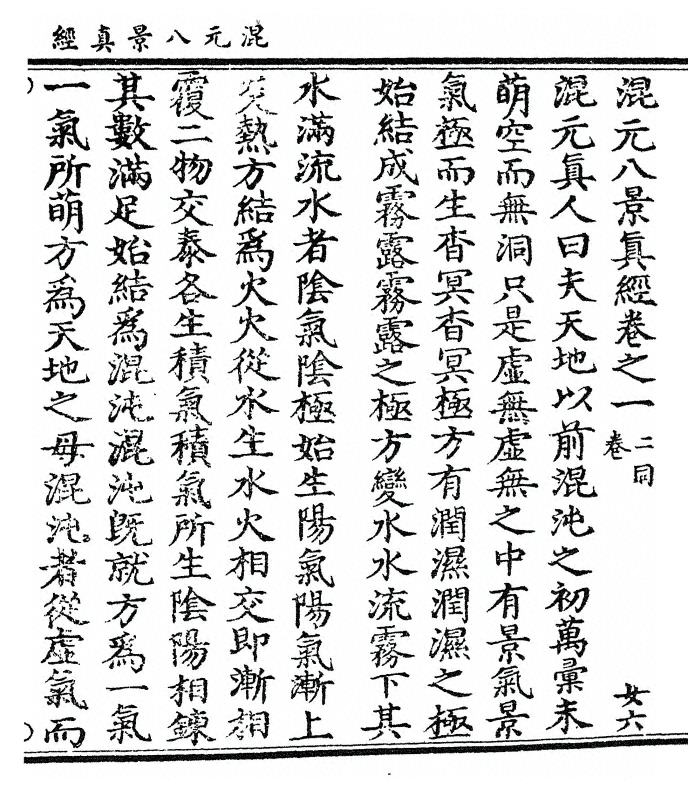 混元八景真經
混元八景真經卷之一 二同卷 女六
混元真人曰夫天地以前混沌之初萬彙未
萌空而無洞只是虛無虛無之中有景氣景
氣極而生杳冥杳冥極方有潤濕潤濕之極
始結成霧露霧露之極方變水水流霧下其
水滿流水者陰氣陰極始生陽氣陽氣漸上
炎熱方結爲火火從水生水火相交即漸相
覆二物交泰各生積氣積氣所生陰陽相鍊
其數滿足始結爲混沌混沌既就方爲一氣
一氣所萌方爲天地之母混沌者從虛氣而